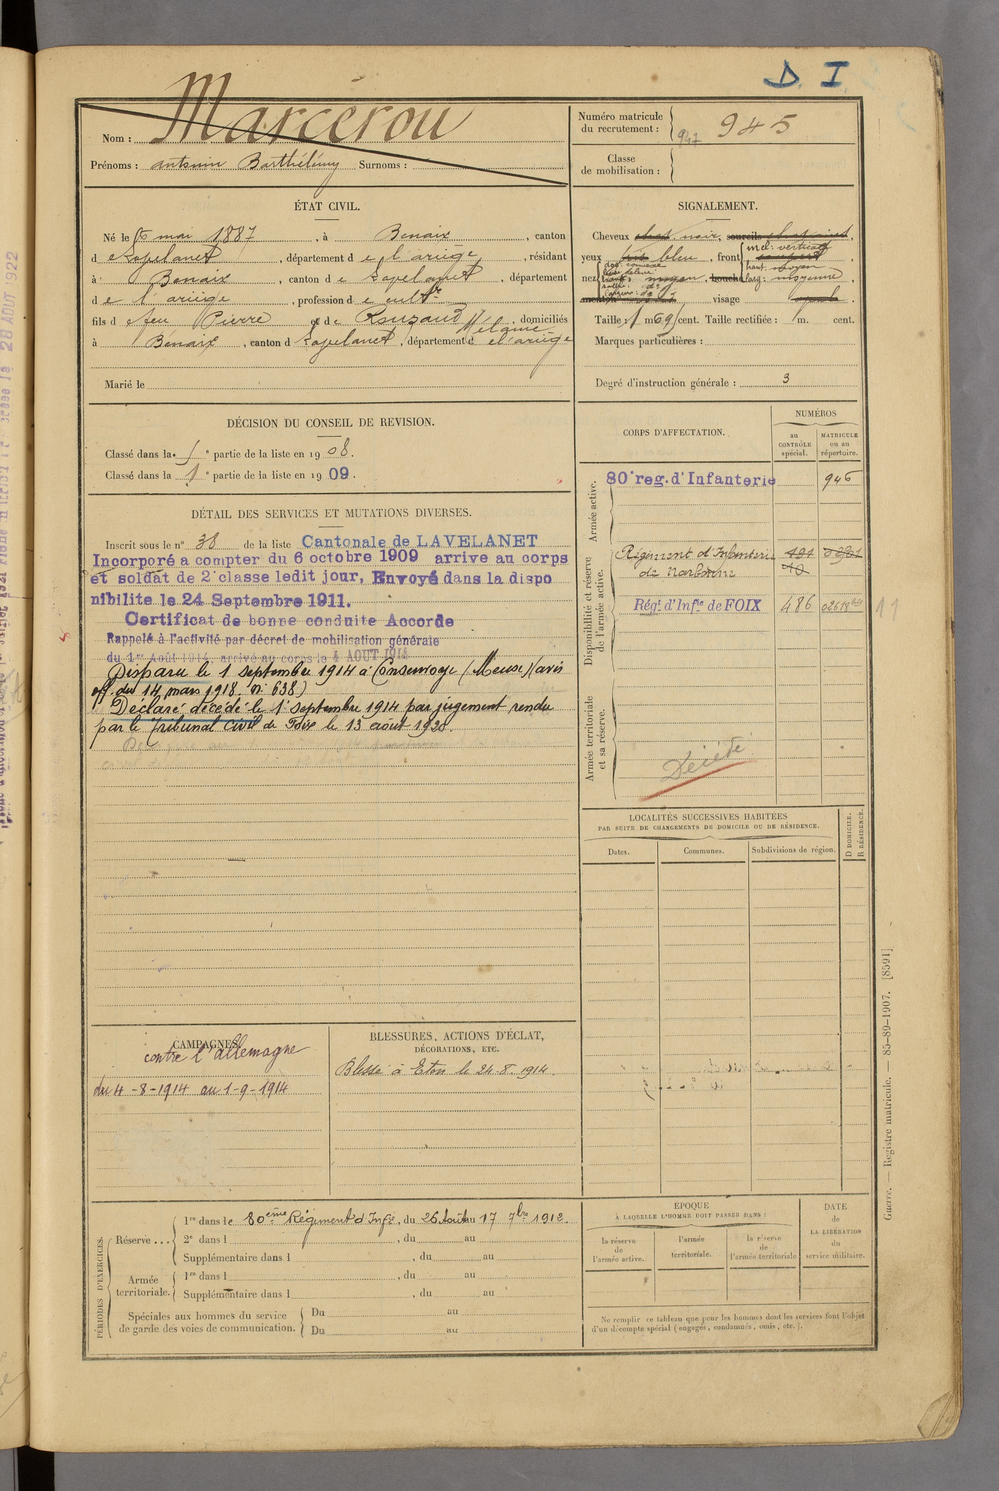 D. I.
Marcerou
Nom :
Prénoms : Antonin Barthélémy Surnoms :
Numéro matricule du recrutement : 947 945
Classe de mobilisation :
ÉTAT CIVIL.
Né le 6 mai 1887, à Benaix, canton
de Lavelanet, département de l'ariège, résidant
à Benaix, canton de Lavelanet, département
de l'ariège, profession de cultr
fils de feu Pierre et de Rouzaud Mélanie, domiciliés
à Benaix, canton d Lavelanet, département de l'ariège
Marié le
SIGNALEMENT.
Cheveux chat. noir, sourcils
yeux bleu, front incl: verticale haut: moyen larg: moyenne
nez moyen, bouche
visage ovale
Taille : 1 m 69 cent. Taille rectifiée : m. cent.
Marques particulières :
Degré d'instruction générale : 3
DÉCISION DU CONSEIL DE REVISION.
Classé dans la 5e partie de la liste en 1908.
Classé dans la 1e partie de la liste en 1909.
DÉTAIL DES SERVICES ET MUTATIONS DIVERSES.
Inscrit sous le n° 38 de la liste Cantonale de LAVELANET
Incorporé a compter du 6 octobre 1909 arrive au corps
et soldat de 2e classe ledit jour, Envoyé dans la dispo
nibilite le 24 Septembre 1911.
Certificat de bonne conduite Accorde
Rappelé à l'activité par décret de mobilisation générale
du 1er Août 1914, arrivé au corps le 4 AOUT 1914
Disparu le 1 septembre 1914 à Consenvoye (Meuse) (avis
off. du 14 mars 1918. n. 638)
Déclaré décédé le 1er septembre 1914 par jugement rendu
par le Tribunal Civil de Foix le 13 août 1920.
CORPS D'AFFECTATION.
NUMÉROS
au CONTRÔLE spécial.
MATRICULE ou au répertoire.
Armée active.
80e reg. d'Infanterie 946
Disponibilité et réserve de l'armée active.
Régiment d'Infanterie
de Narbonne
Régt d'Infie de FOIX 486 02618
11
Armée territoriale et sa réserve.
Décédé
LOCALITÉS SUCCESSIVES HABITÉES
PAR SUITE DE CHANGEMENTS DE DOMICILE OU DE RÉSIDENCE.
Dates.
Communes.
Subdivisions de région.
D DOMICILE. R RÉSIDENCE.
CAMPAGNES.
contre l'allemagne
du 4-8-1914 au 1-9-1914
BLESSURES, ACTIONS D'ÉCLAT,
DÉCORATIONS, ETC.
Blessé à Eton le 24.8.1914.
PÉRIODES D'EXERCICES.
Réserve ...
1re dans le 80ème Régiment d'Infie, du 26 Août au 17 7bre 1912.
2e dans l , du au
Supplémentaire dans l , du au
Armée territoriale.
1re dans l , du au
Supplémentaire dans l , du au
Spéciales aux hommes du service
de garde des voies de communication.
Du au
Du au
EPOQUE
À LAQUELLE L'HOMME DOIT PASSER DANS :
la réserve de l'armée active.
l'armée territoriale.
la réserve de l'armée territoriale
DATE DE LA LIBÉRATION du service militaire.
Ne remplir ce tableau que pour les hommes dont les services font l'objet
d'un décompte spécial (engagés, condamnés, omis, etc.).
Guerre. — Registre matricule. — 85-89-1907. [8591]